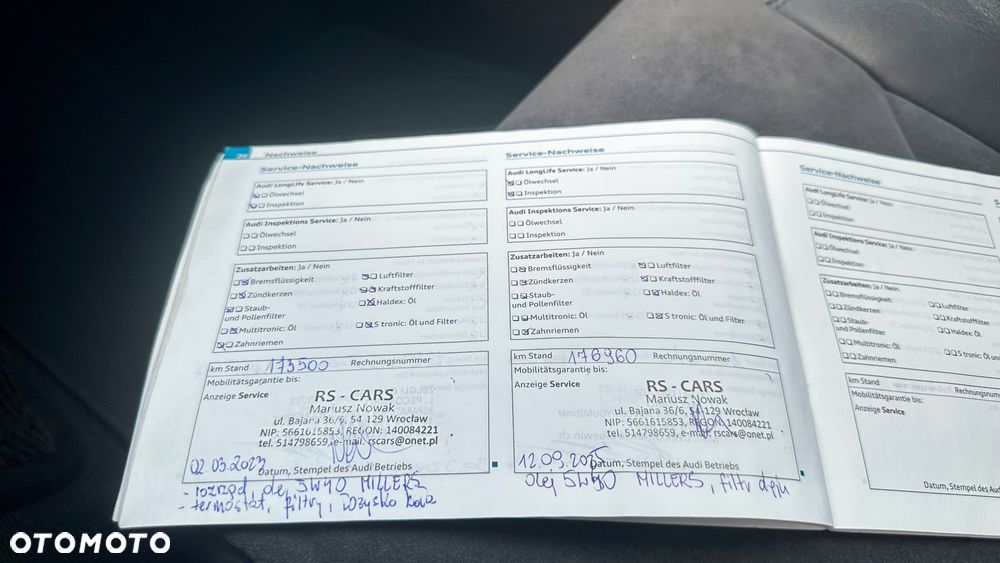 26 Nachweise
Service-Nachweise
Audi LongLife Service: Ja / Nein
Ölwechsel
Inspektion
Audi Inspektions Service: Ja / Nein
Ölwechsel
Inspektion
Zusatzarbeiten: Ja / Nein
Bremsflüssigkeit
Luftfilter
Zündkerzen
Kraftstofffilter
Staub-
und Pollenfilter
Haldex: Öl
Multitronic: Öl
S tronic: Öl und Filter
Zahnriemen
km Stand 173500 Rechnungsnummer
Mobilitätsgarantie bis:
Anzeige Service
RS - CARS
Mariusz Nowak
ul. Bajana 36/6, 54 129 Wrocław
NIP: 5661615853, REGON: 140084221
tel. 514798659, e-mail: rscars@onet.pl
02.03.2023
Datum, Stempel des Audi Betriebs
- rozrząd, olej 5W40 MILLERS
- termostat, filtry,
Service-Nachweise
Audi LongLife Service: Ja / Nein
Ölwechsel
Inspektion
Audi Inspektions Service: Ja / Nein
Ölwechsel
Inspektion
Zusatzarbeiten: Ja / Nein
Bremsflüssigkeit
Luftfilter
Zündkerzen
Kraftstofffilter
Staub-
und Pollenfilter
Haldex: Öl
Multitronic: Öl
S tronic: Öl und Filter
Zahnriemen
km Stand 176960 Rechnungsnummer
Mobilitätsgarantie bis:
Anzeige Service
RS - CARS
Mariusz Nowak
ul. Bajana 36/6, 54 129 Wrocław
NIP: 5661615853, REGON: 140084221
tel. 514798659, e-mail: rscars@onet.pl
12.09.2025
Datum, Stempel des Audi Betriebs
olej 5W40 MILLERS, filtr oleju
Service-Nachweise
Audi LongLife Service: Ja / Nein
Ölwechsel
Inspektion
Audi Inspektions Service: Ja / Nein
Ölwechsel
Inspektion
Zusatzarbeiten: Ja / Nein
Bremsflüssigkeit
Luftfilter
Zündkerzen
Kraftstofffilter
Staub-
und Pollenfilter
Haldex: Öl
Multitronic: Öl
S tronic: Öl und
Zahnriemen
km Stand
Mobilitätsgarantie bis:
Anzeige Service
Datum, Stempel des Audi
OTOMOTO